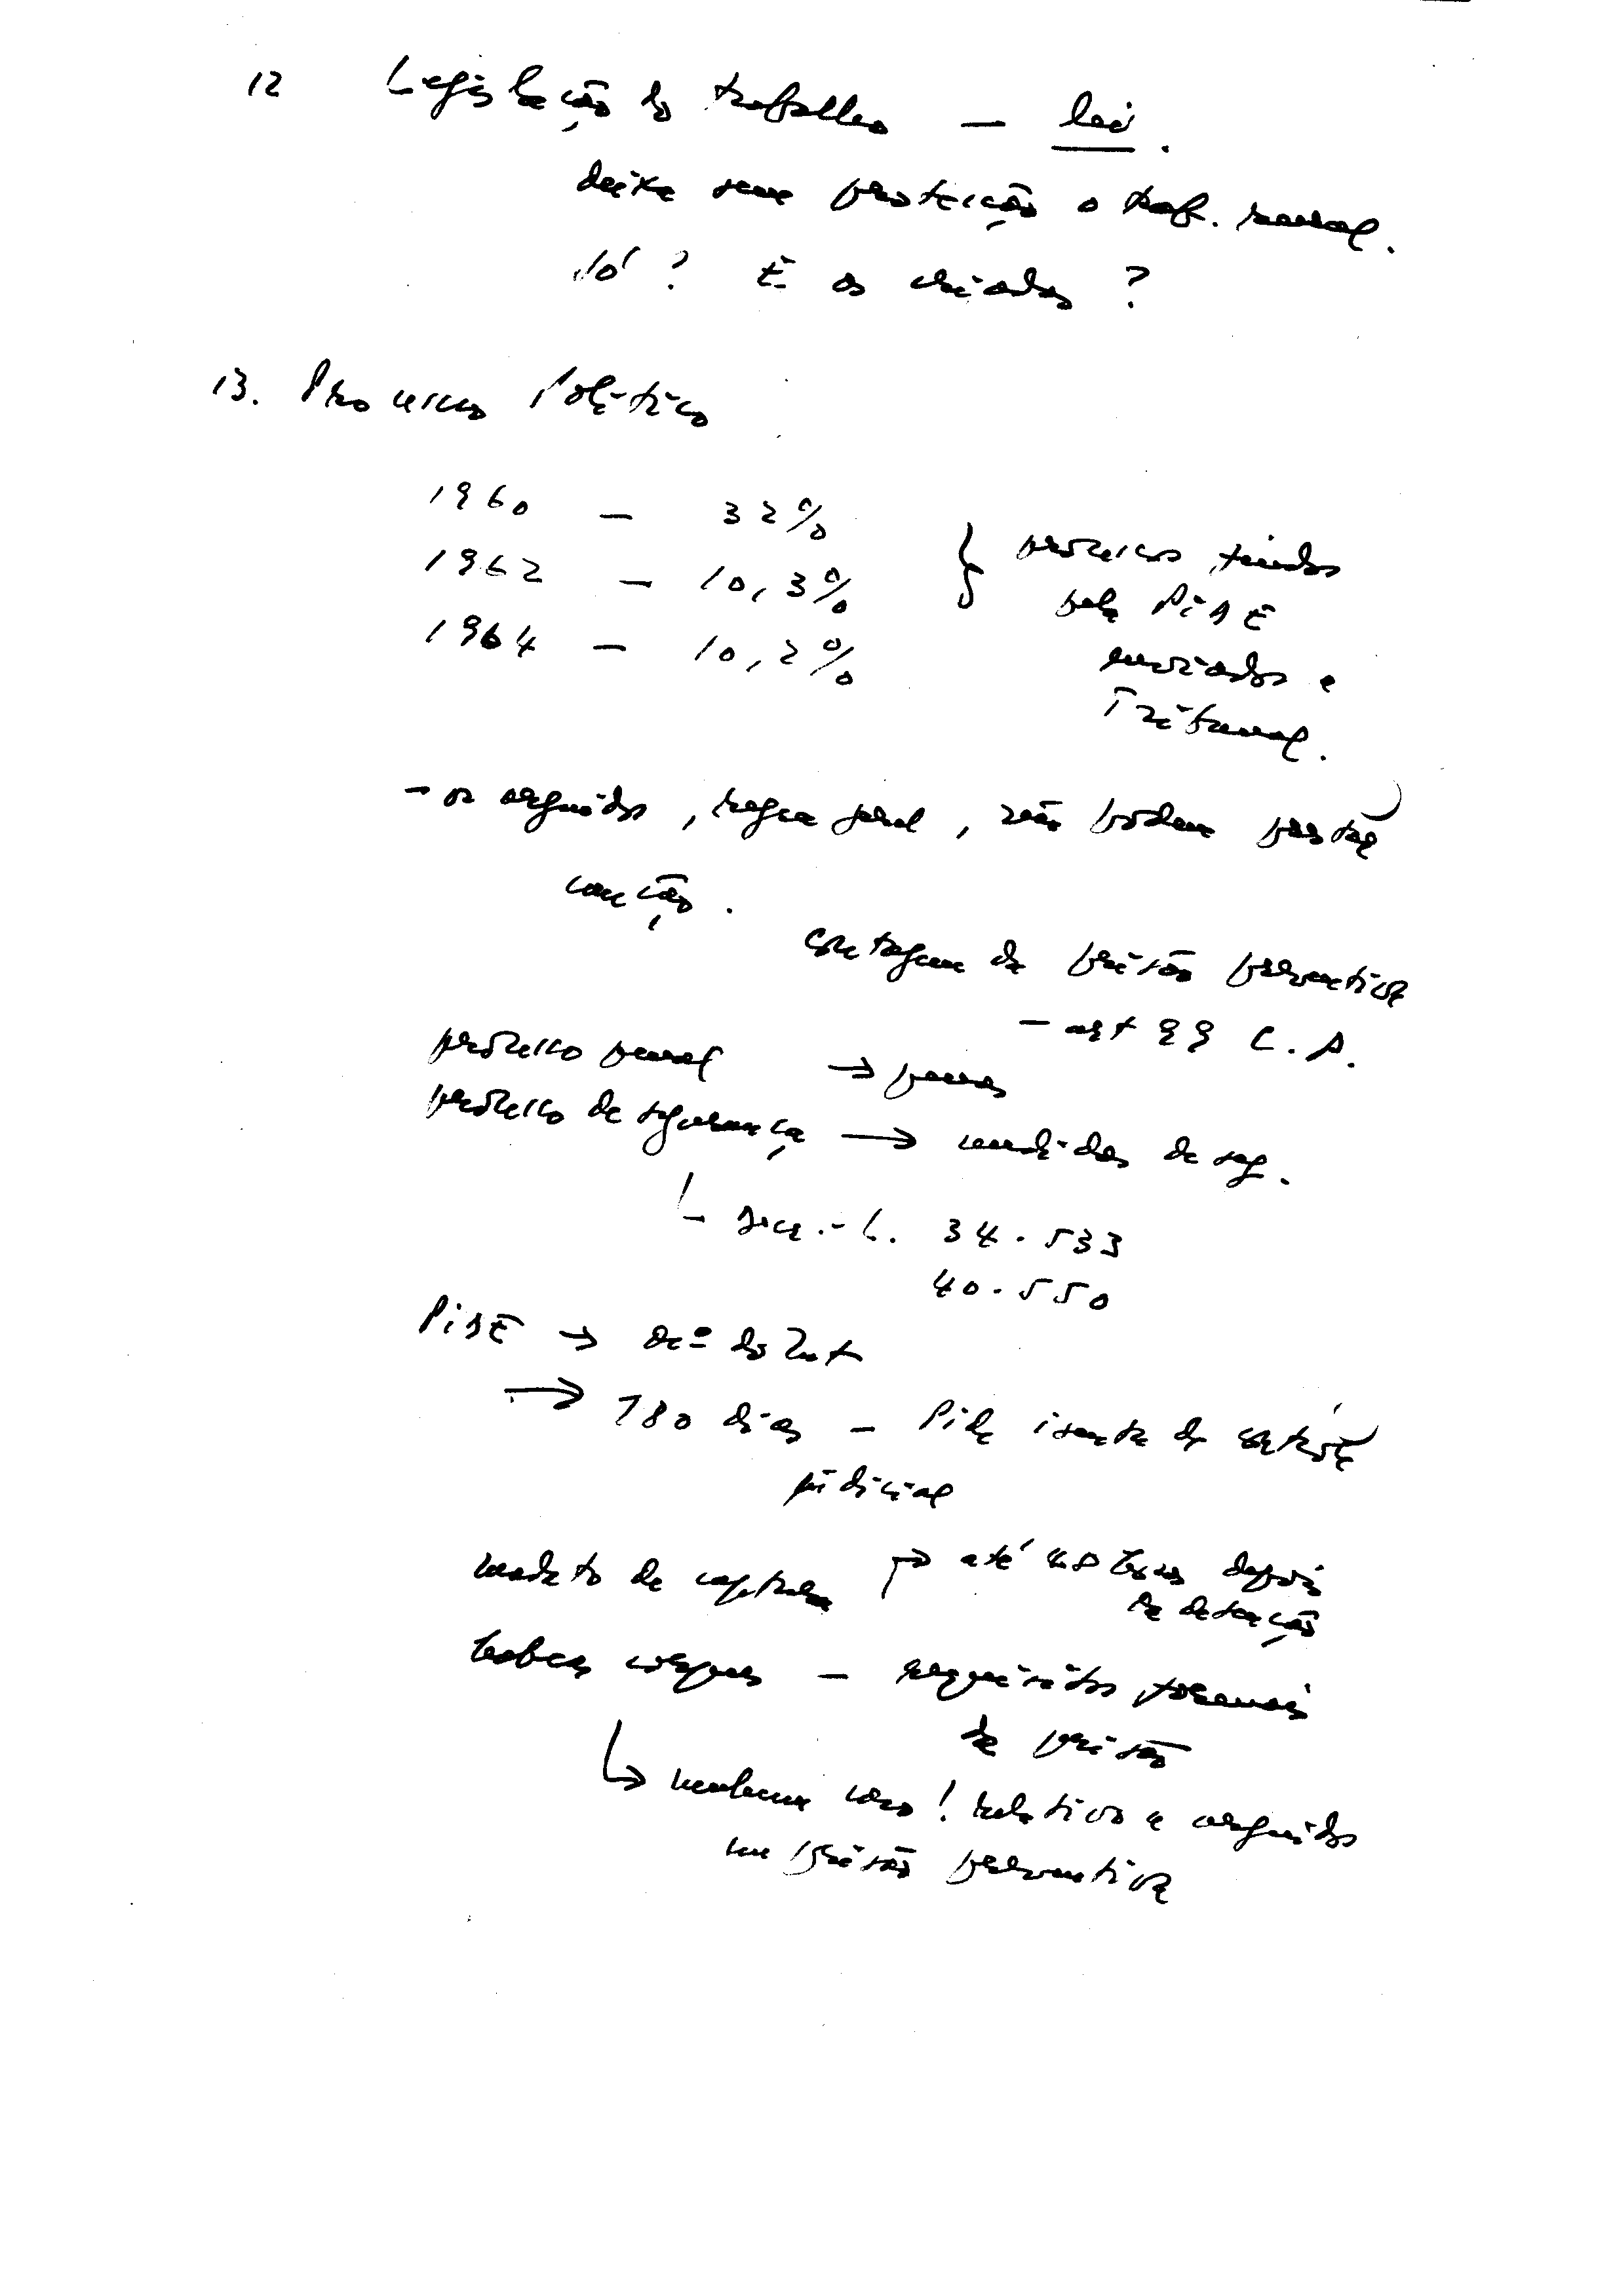 12 Legislação do trabalho — lei.
deixa sem protecção o trab. rural.
Só? E os criados?
13. Processo Político
1960 — 32%
1962 — 10,3% } processos findos
pela PIDE
1964 — 10,2%
enviados a
Tribunal.
- os arguidos, regra geral, não podem prestar
caução.
contagem da prisão preventiva
— art 99 C.P.
processo penal → penas
processo de segurança → medidas de seg.
Dec.-L. 34.533
40.550
PIDE → do Int
→ 180 dias — Pide isenta de controle
judicial
mandato de captura → até 48 horas depois
da detenção
habeas corpus — requisitos formais
da prisão
↳ nenhum caso! relativo a arguidos
em prisão preventiva